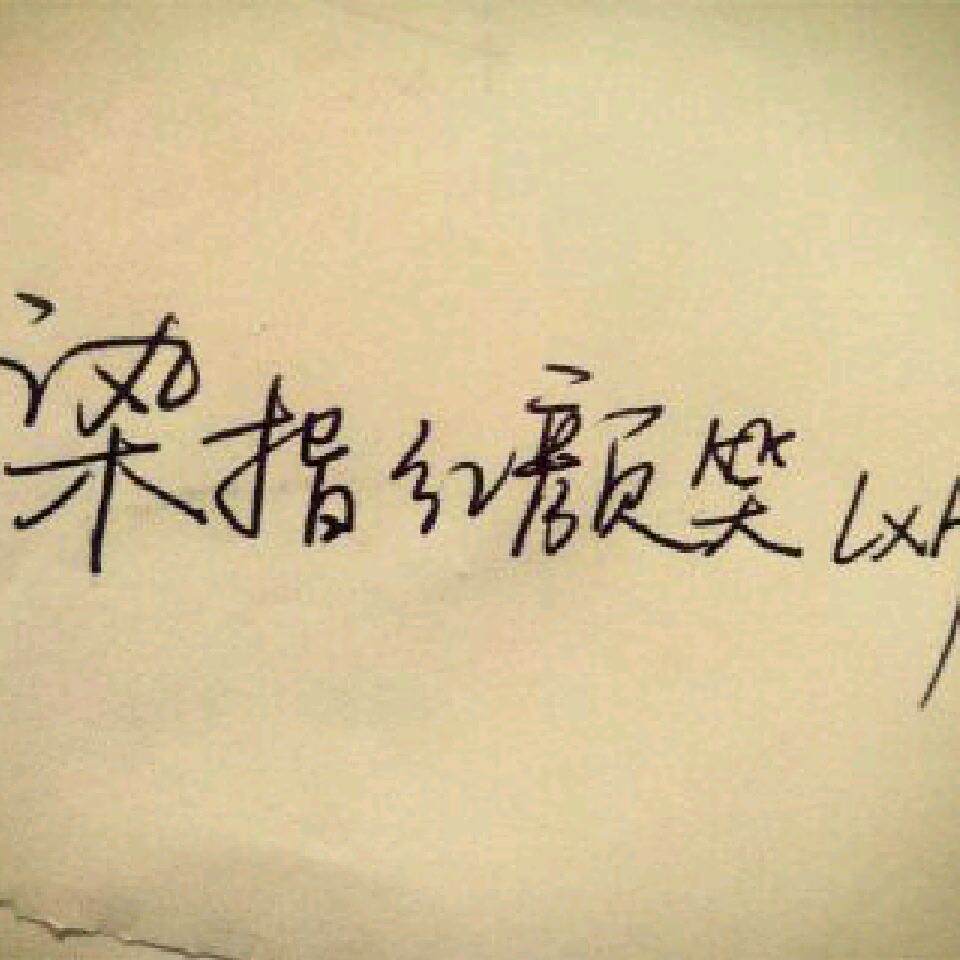 染指红颜笑